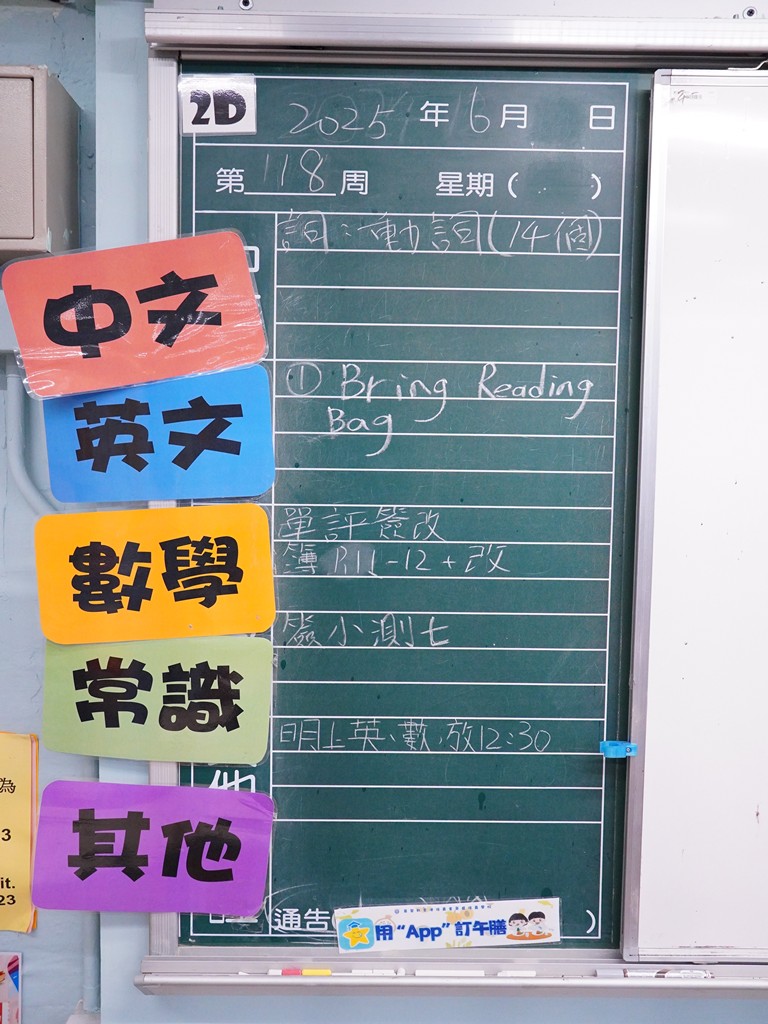 2D
2025 年 6 月 日
第 118 周 星期 ( )
詞：動詞(14個)
中文
① Bring Reading
Bag
英文
單評簽改
簿 P.11-12 + 改
數學
簽小測七
常識
明上英、數，放12:30
他
其他
通告( )
用“App”訂午膳
為
3
it.
23